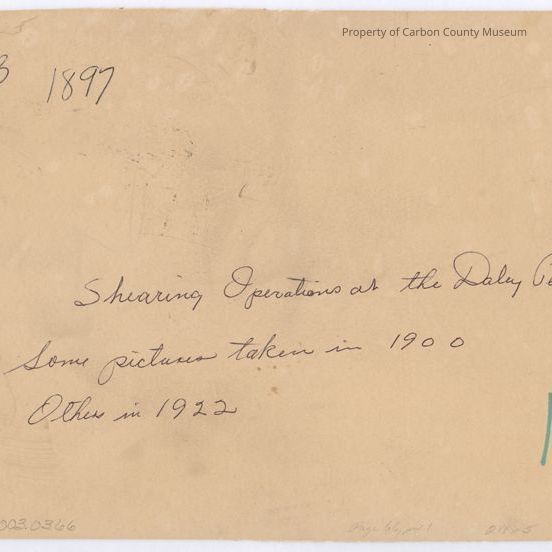 Property of Carbon County Museum
3 1897
Shearing Operations at the Daley
Some pictures taken in 1900
Others in 1922
003.0366